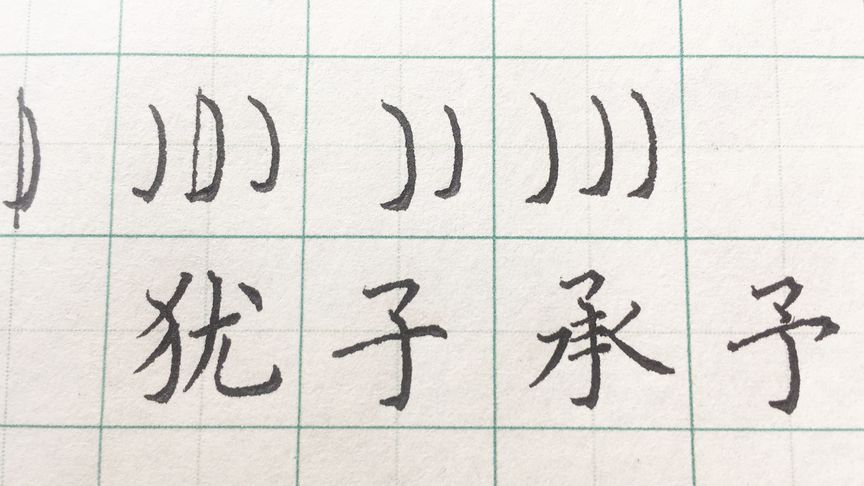 犹子承予